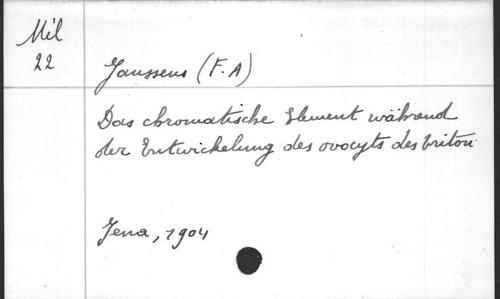 Mil
22
Janssens (F.A)
Das chromatische Element während
der Entwickelung des ovocyts des triton
Jena, 1904